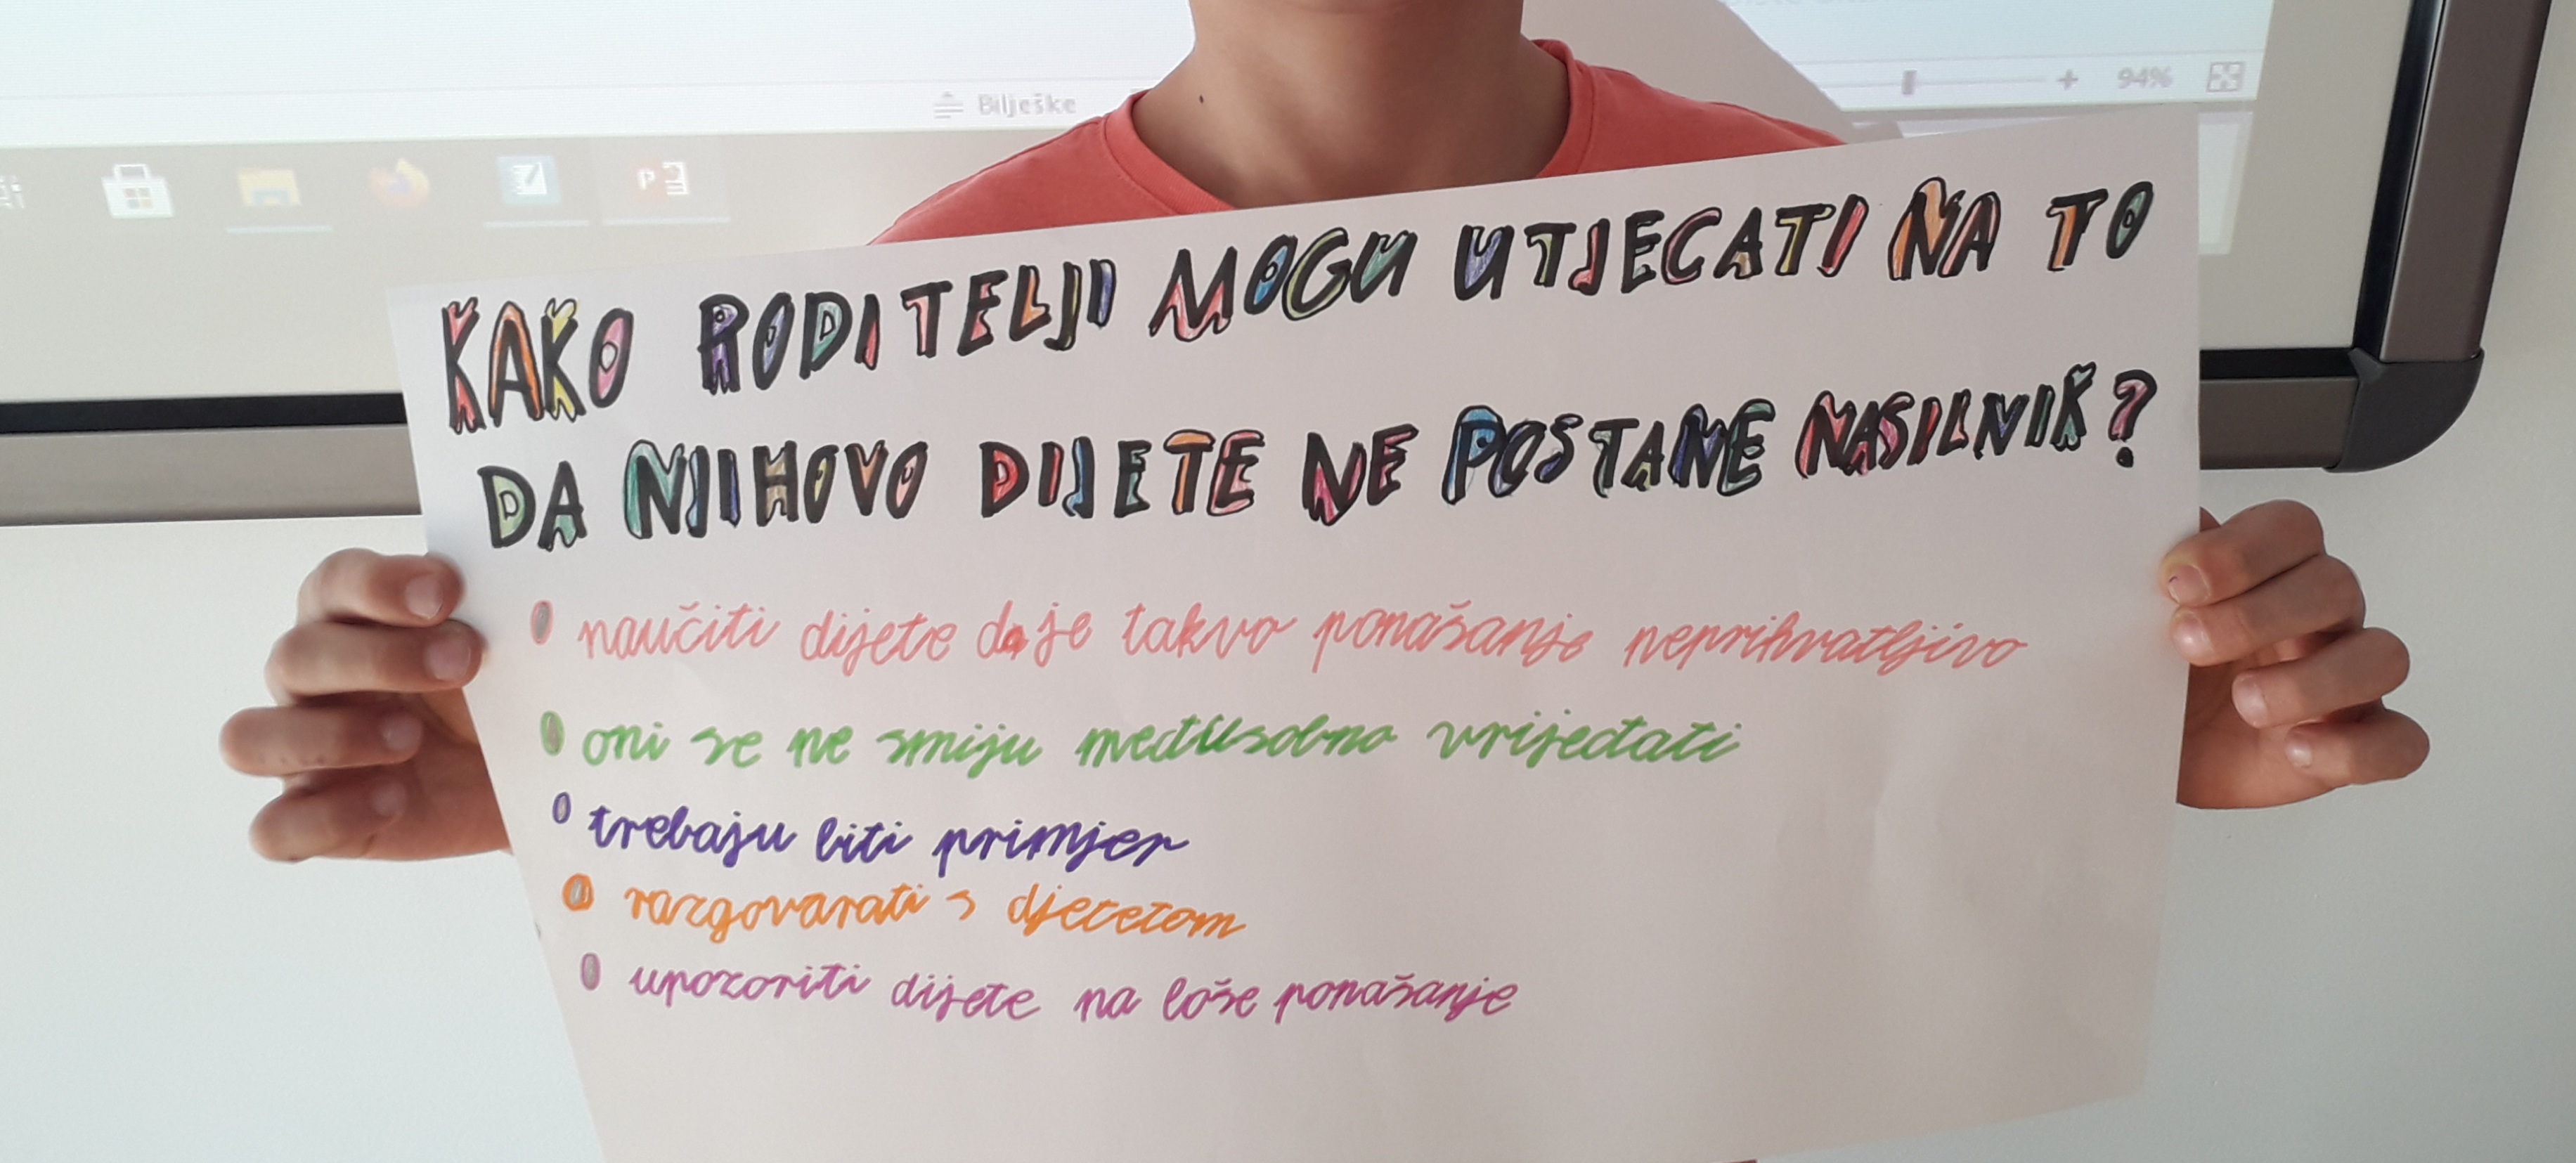 Bilješke
94%
KAKO RODITELJI MOGU UTJECATI NA TO
DA NJIHOVO DIJETE NE POSTANE NASILNIK?
naučiti dijete da je takvo ponašanje neprihvatljivo
oni se ne smiju međusobno vrijeđati
trebaju biti primjer
razgovarati s djetetom
upozoriti dijete na loše ponašanje